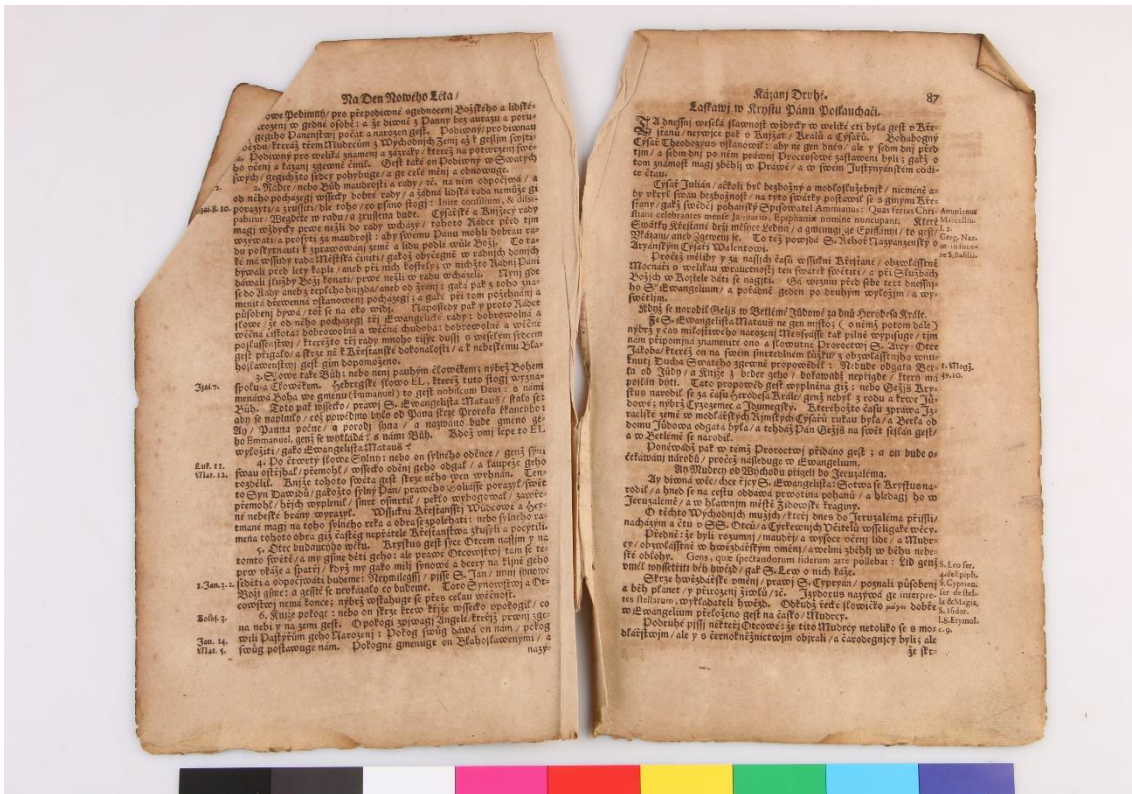 Na Den Nowého Léta /
owe Podiwný / pro přepodiwné sgednocenj Božského a lidské-
narozenj w gedné osobě: a že diwně z Panny bez aurazu a poru-
gegiho Panenstwj počat a narozen gest. Podiwný / pro diwnau
hwězdu / kteráž třem Mudrcům z Wýchodnjch Zemj až k geslim swjti-
la. Podiwný pro weliká znamenj a zázraky / kteréž na potwrzenj swé-
ho včenj a kázanj zgewně činil. Gest také on Podiwný w Swatých
swých / gegichžto srdcy pohybuge / a ge celé měnj a obnowuge.
2. 2. Rádce / nebo Bůh maudrosti a rady / rc. na něm odpočjwá / a
od něho pocházegj wssecky dobré rady / a žádná lidská rada nemůže gj
Jzai. 8. 10. porazyti / a zrussiti: dle toho / co psáno stogj: Inite consilium, & dissi-
pabitur / Wegděte w radu / a zrussena bude. Cýsařské a Knjžecý rady
magj wždycky prwé nežli do rady wcházý / tohoto Rádce před tjm
wzýwati / a prosyti za maudrost: aby swému Pánu mohli dobrau ra-
du poskytnauti k zprawowánj země a lidu podlé wůle Božj. To ta-
ké má wssudy rada Městská činiti / gakož obyčegně w radnjch domjch
býwali před léty kaple / aneb při nich kostely: w nichžto Radnj Páni
dáwali služby Božj konati / prwé nežli w radu wcházeli. Nynj gde
se do Rady aneb z teplého hnjzda / aneb od žranj: gaká pak z toho zna-
menitá dřewenná vstanowenj pocházegj: a gaké při tom požehnánj a
působenj býwá / toť se na oko widj. Naposledy pak y proto Rádce
slowe / že od něho pocházegj tři Ewangelické rady: dobrowolná a
wěčná čistota: dobrowolná a wěčná chudoba: dobrowolné a wěčné
poslussenstwj / kterežto tři rady mnoho tisýc dussj s weselým srdcem
gest přigalo / a skrze ně k Křestanské dokonalosti / a k nebeskému Bla-
hoslawenstwj gest gim dopomoženo.
3. Slowe také Bůh: nebo nenj pauhým člowěkem; nýbrž Bohem
Jzai. 7. spolu a Člowěkem. Hebregské slowo EL, kteréž tuto stogj wyzna-
menáwá Boha we gménu (Immanuel) to gest nobiscum Deus: s námi
Bůh. Toto pak wssecko / prawj S. Ewangelista Mataus / stalo se:
aby se naplnilo / což powědjno bylo od Pána skrze Proroka řkaucýho:
Ay / Panna počne / a porodj syna / a nazwáno bude gméno ge-
ho Emmanuel, genž se wykládá: s námi Bůh. Kdož vmj lépe to EL
wyložiti / gako Ewangelista Mataus?
Luk. 11. 4. Po čtwrtý slowe Sylný: nebo on sylného oděnce / genž syni
Mat. 12. swau ostřjhal / přemohl / wssecko oděnj geho odgal / a laupeže geho
rozdělil. Knjže tohoto swěta gest skrze něho wen wyhnán. Ten-
to Syn Dawidů / gakožto sylný Pán / prawého Goliásse porazyl / swět
přemohl / hřjch wyplenil / smrt vsmrtil / peklo wybogowal / zawře-
né nebeské brány wyrazyl. Wssickni Křestanssti Wůdcowé a Hey-
tmané magj na toho sylného reka a obra se spoléhati: nebo sylného ra-
mena tohoto obra giž častěg nepřátelé Křestanstwa zkusyli a pocýtili.
5. Otec budaucýho wěku. Krystus gest sýce Otcem nassjm y na
tomto swětě / a my gsme děti geho: ale prawé Otcowstwj tam se te-
prw vkáže a spatřj / když my gako milj synowé a dcery na kljně geho
1. Jan. 3. 2. seděti a odpočjwati budeme: Neymilegssj / pjsse S. Jan / nynj synowé
Božj gsme: a gesstě se nevkázalo co budeme. Toto Synowstwj a Ot-
cowstwj nemá konce; nýbrž wztahuge se přes celau wěčnost.
6. Knjže pokoge: nebo on skrze krew křjže wssecko vpokogil / co
Koloss. 3. na nebi y na zemi gest. O pokogi zpjwagj Angelé / kteřjž prwnj zge-
weli Pastýřům geho Narozenj: Pokog swůg dáwá on nám / pokog
Jan. 14. swůg postawuge nám. Pokogné gmenuge on Blahoslawenými / a
Mat. 5.
nazý-
Kázanj Druhé. 87
Laskawj w Krystu Pánu Poslauchači.
TA dnessnj weselá slawnost wždycky w weliké cti byla gest v Kře-
stanů / neywjce pak v Knjžat / Králů a Cýsařů. Bohabogný
Cýsař Theodozyus vstanowil: aby ne gen dnes / ale y sedm dnj před
tjm / a sedm dnj po něm práwnj Procesowé zastaweni byli; gakž o
tom známost magj zběhlj w Práwě / a w swém Justynyánském codi-
ce čtau.
Cýsař Julián / ačkoli byl bezbožný a modloslužebnjk / nicméně a-
by vkryl swau bezbožnost / na tyto swátky postawil se s ginými Kře-
stany / gakž swědčj pohanský Spisowatel Ammianus: Quas ferias Chri-
stiani celebrantes mense Januario, Epiphaniæ nomine nuncupant. Které
Swátky Křestané držj měsýce Ledna / a gmenugj ge Epiffányi / to gest /
Vkázanj / aneb Zgewenj ge. To též powjdá S. Řehoř Nazyanzenský o
Aryánským Cýsaři Walentowi.
Ammianus
Marcellin.
L. 2.
Greg. Naz.
or. in fune-
re S. Basilii.
Pročež měliby y za nassich časů wssickni Křestané / obzwlásstně
Mocnáři s welikau wrautnostj ten swátek swětiti / a při Službách
Božjch w Kostele dáti se nagjti. Gá wezmu před sebe text dnessnj-
ho S. Ewangelium / a pořádně geden po druhým wyložjm / a wy-
swětljm.
Když se narodil Gežjš w Betlémě Júdowě za dnů Herodesa Krále.
Že S. Ewangelista Mataus ne gen mjsto; (o němž potom dále)
nýbrž y čas milostiwého narozenj Messyásse tak pilně wypisuge / tjm
nám připomjná znamenité ono a slowutné Proroctwj S. Arcy-Otce
Jakoba / kteréž on na swém smrtedlném lůžku / z obzwlásstnjho wnu-
knutj Ducha Swatého zgewně propowěděl: Nebude odgata Ber-
la od Júdy / a Knjže z beder geho / dokawadž nepřigde / který má
poslán býti. Tato propowěd gest wyplněna giž: nebo Gežjš Kry-
stus narodil se za času Herodesa Krále / genž nebyl z rodu a krwe Jú-
dowé; nýbrž Cyzozemec a Jdumegský. Kteréhožto času zpráwa Jz-
raelské země w modlářských Řjmských Cýsařů rukau byla / a Berla od
domu Júdowa odgata byla / a tehdáž Pán Gežjš na swět seslán gest /
a w Betlémě se narodil.
1. Magž.
49. 10.
Poněwádž pak w témž Proroctwj přidáno gest; a on bude o-
čekáwánj národů / pročež následuge w Ewangelium.
Ay Mudrcy od Wýchodu přigeli do Jeruzaléma.
Ay diwná wěc / chce řjcy S. Ewangelista: Sotwa se Krystus na-
rodil / a hned se na cestu oddáwá prwotina pohanů / a hledagj ho w
Jeruzalémě / a w hlawnjm městě Židowské kraginy.
O těchto Wýchodnjch mužjch / kteřj dnes do Jeruzaléma přissli /
nacházým a čtu v SS. Otců / a Cýrkewnjch Včitelů wsseligaké wěcy.
Předně: že byli rozumnj / maudřj / a wysoce včenj lidé / a Mudr-
cy / obzwlásstně w hwězdářským vměnj / a welmi zběhlj w běhu nebe-
ské oblohy. Gens, quæ spectandorum siderum arte pollebat: Lid genž
vměl wyssetřiti běh hwězd / gak S. Lew o nich káže.
Skrze hwězdářské vměnj / prawj S. Cypryán / poznali působenj
a běh planet / y přirozenj žiwlů / rc. Jzydorus nazýwá ge interpre-
tes stellarum, wykladateli hwězd. Odkudž řecké slowjčko μάγοι dobře
w Ewangelium přeloženo gest na česko / Mudrcy.
S. Leo ser.
4 de Epiph.
S. Cyprian.
ser de stel-
la & Magis.
S. Isidor.
L. 8. Etymol.
c. 9.
Podruhé pjssj někteřj Otcowé: že tito Mudrcy netoliko se s mo-
dlářstwjm / ale y s černokněžnictwjm objrali / a čarodegnjcy byli; ale
že skr-